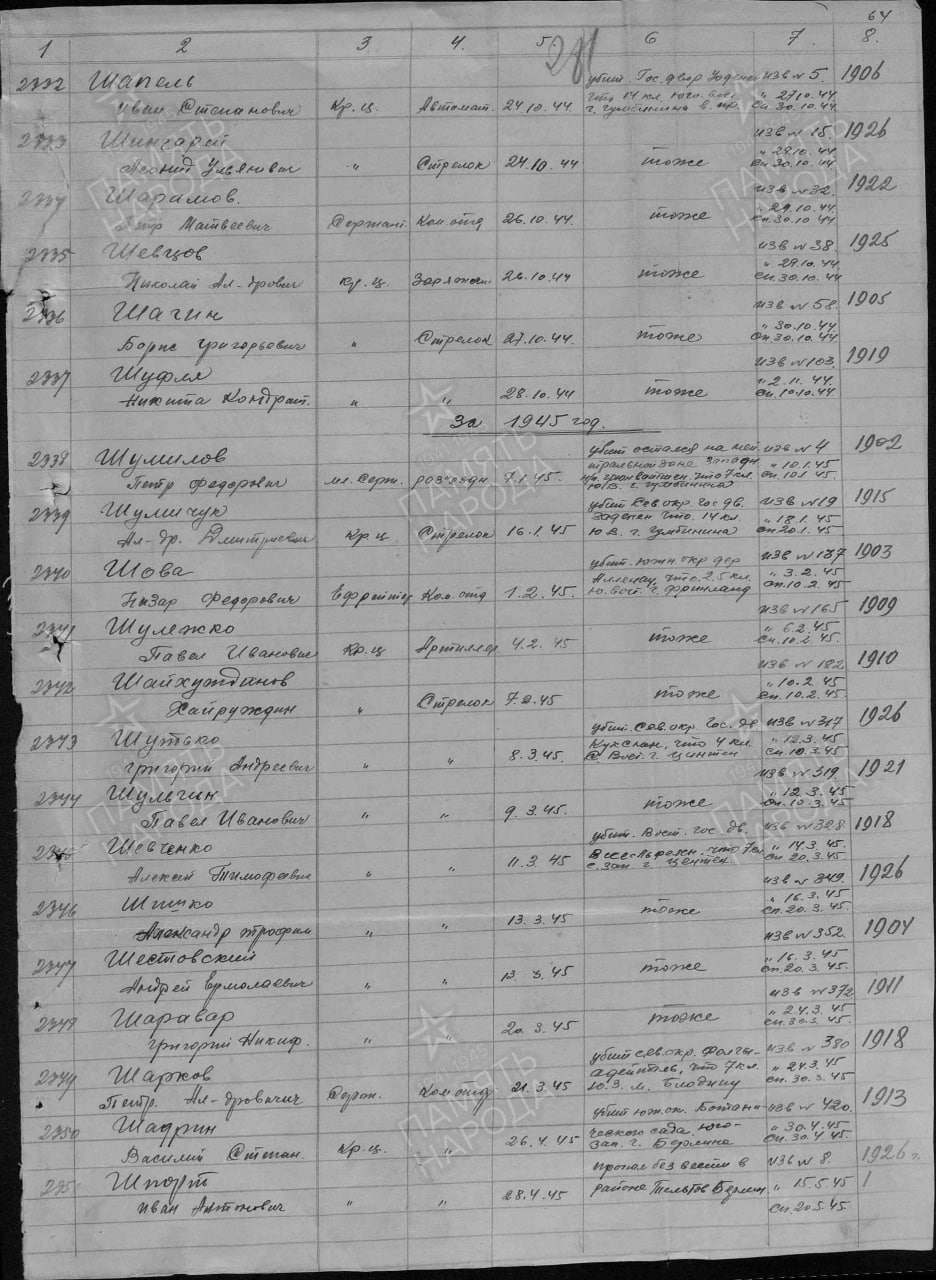 64
1 2 3. 4. 5 6 7. 8.
281
2332 Шапель убит Гос. двор изв № 5. 1906
Иван Степанович Кр-ц. Автомат. 24.10.44 что 14 кл. юго. вост " 27.10.44
г. Гумбинина в. пр. сп. 30.10.44
2333 изв № 15. 1926
Леонид Ульянович " Стрелок 24.10.44 тоже " 28.10.44
сп 30.10.44
2334 Шарамов. изв № 32. 1922
Петр Матвеевич Сержант. Ком. отд 26.10.44 тоже " 29.10.44
сп. 30.10.44
2335 Шевцов изв № 38. 1925
Николай Ал-дрович Кр. ц. Заряжен. 26.10.44 тоже " 29.10.44
сп. 30.10.44
2336 Шагин изв № 58. 1905
Борис Григорьевич " Стрелок 27.10.44. тоже " 30.10.44
сп 30.10.44
2337 Шуфля изв № 103. 1919
Никита Кондрат. " " 28.10.44 тоже " 2.11.44.
сп. 10.10.44
За 1945 год.
2338 Шумилов убит остался на ней изв № 4 1902
Петр Федорович мл. Серж. разведч. 7.1.45. тральной зоне Западн " 10.1.45
что 7 кл. сп. 10.1.45
Ю/В. г. Гумбинина
2339 Шумчук убит Сев окр. Гос дв. изв № 19 1915
Ал-др. Дмитриевич Кр-ц. Стрелок 16.1.45 что. 14 кл. " 18.1.45
Ю В. г. Гумбинина сп 20.1.45
2340 Шова убит. южн окр дер изв № 137 1903
Назар Федорович Ефрейтор Ком. отд 1.2.45. Алленау, что 2.5 кл. " 3.2.45
ю. вост. г. Фридланд сп. 10.2.45
2341 Шулежко изв № 165 1909
Павел Иванович Кр-ц Артиллер 4.2.45 тоже " 6.2.45
сп. 10.2.45.
2342 Шайхуждинов изв № 182 1910
Хайруждин " Стрелок 7.2.45 тоже " 10.2.45
сп. 10.2.45.
2343 Шутько убит. Сев окр. Гос. дв изв № 317 1926
Григорий Андреевич " " 8.3.45. Кукенен, что 4 кл. " 12.3.45
С. Вост. г. Цинтен сп. 10.3.45
2344 Шульгин изв № 319. 1921
Павел Иванович " " 9.3.45. тоже " 12.3.45
сп. 10.3.45
2345 Шевченко убит. Вост. гос. дв. изв № 328 1918
Алексей Тимофеевич " " 11.3.45 что 7 кл " 14.3.45.
с. зап. г. Центен сп. 20.3.45
2346 Шишко изв № 349. 1926
Александр Трофим " " 13.3.45 тоже " 16.3.45
сп. 20.3.45.
2347 Шестовский изв № 352. 1904
Андрей Ермолаевич " " 13.3.45 тоже " 16.3.45
сп. 20.3.45.
2348 Шаравар изв № 372 1911
Григорий Никиф. " " 20.3.45 тоже " 24.3.45
сп. 30.3.45.
2349 Шарков убит сев. окр. изв № 380 1918
Петр. Ал-дровичич Серж. Ком отд 21.3.45 что 7 кл. " 24.3.45
Ю. З. м. Блодину сп. 30.3.45
2350 Шадрин убит юж. ок. Ботани- изв № 420. 1913
Василий Степан. Кр-ц. " 26.4.45 ческого сада. юго- " 30.4.45
зап. г. Берлина сп. 30.4.45.
235 Шпорт пропал без вести в изв № 8. 1926 г.
Иван Антонович " " 28.4.45 районе Тельтов Берлин " 15.5.45
сп. 20.5.45
ПАМЯТЬ
НАРОДА